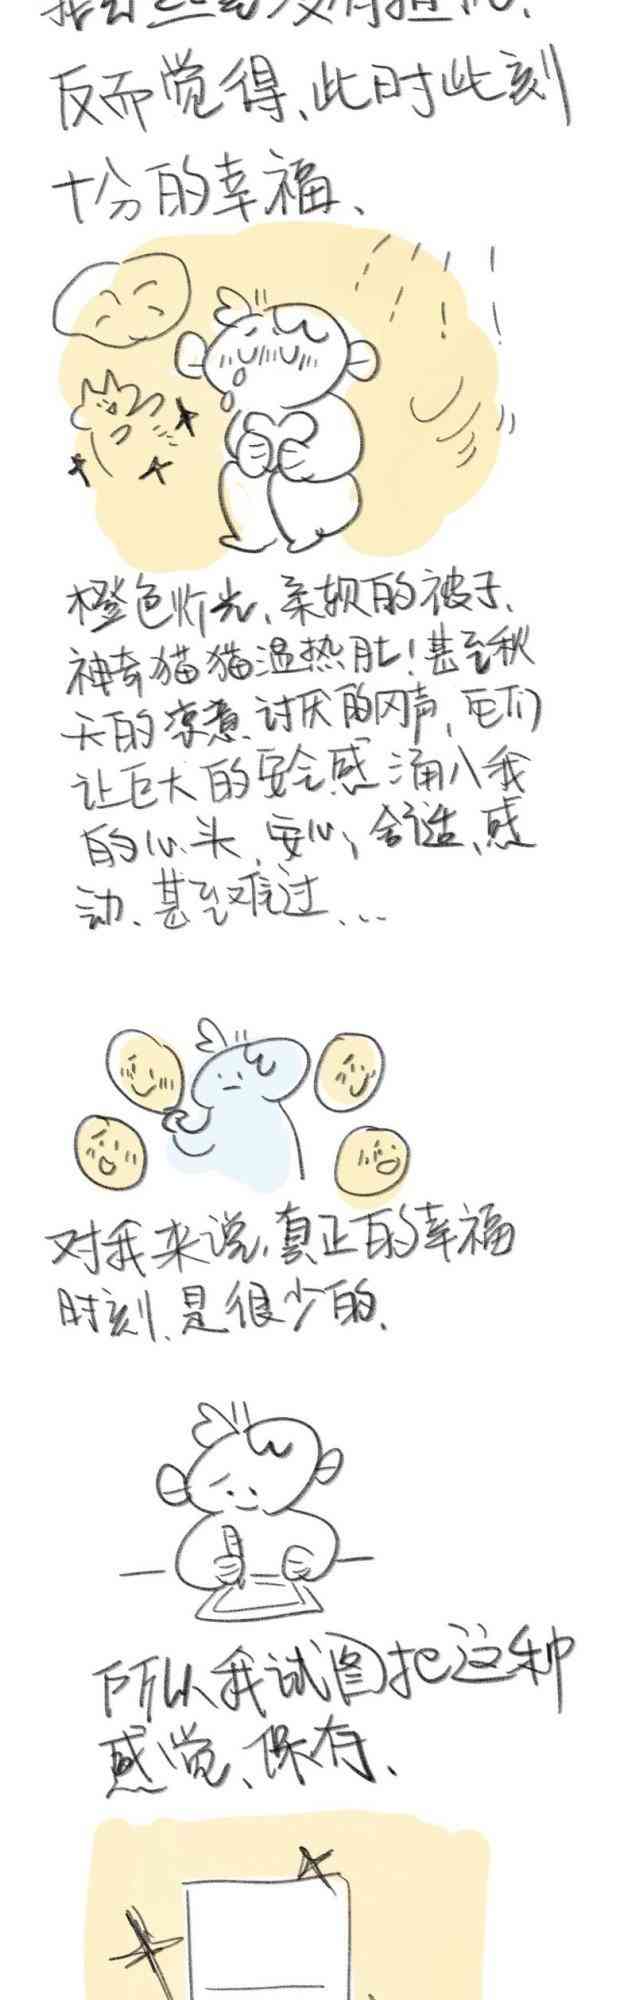 反而觉得、此时此刻
十分的幸福、
橙色灯光、柔软的被子、
神奇猫猫温热肚！甚至秋
天的凉意、讨厌的风声，它们
让巨大的安全感涌入我
的心头、安心、舒适、感
动、甚至难过、...
对我来说，真正的幸福
时刻、是很少的、
所以我试图把这种
感觉、保存、